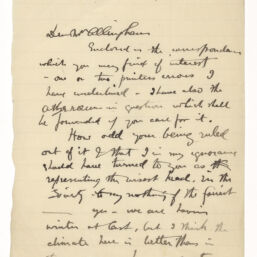 Dear Mr Allingham
Enclosed is the correspondence
which you may find of interest
- one or two printers errors I
have underlined - I have also the
Athenaeum in question which shall
be forwarded if you care for it.
How odd your being ruled
out of it & that I in my ignorance
should have turned to you as
representing the wisest head in the
Society to say nothing of the fairest
- yes - we are having
winter at last, but I think the
climate here is better than in